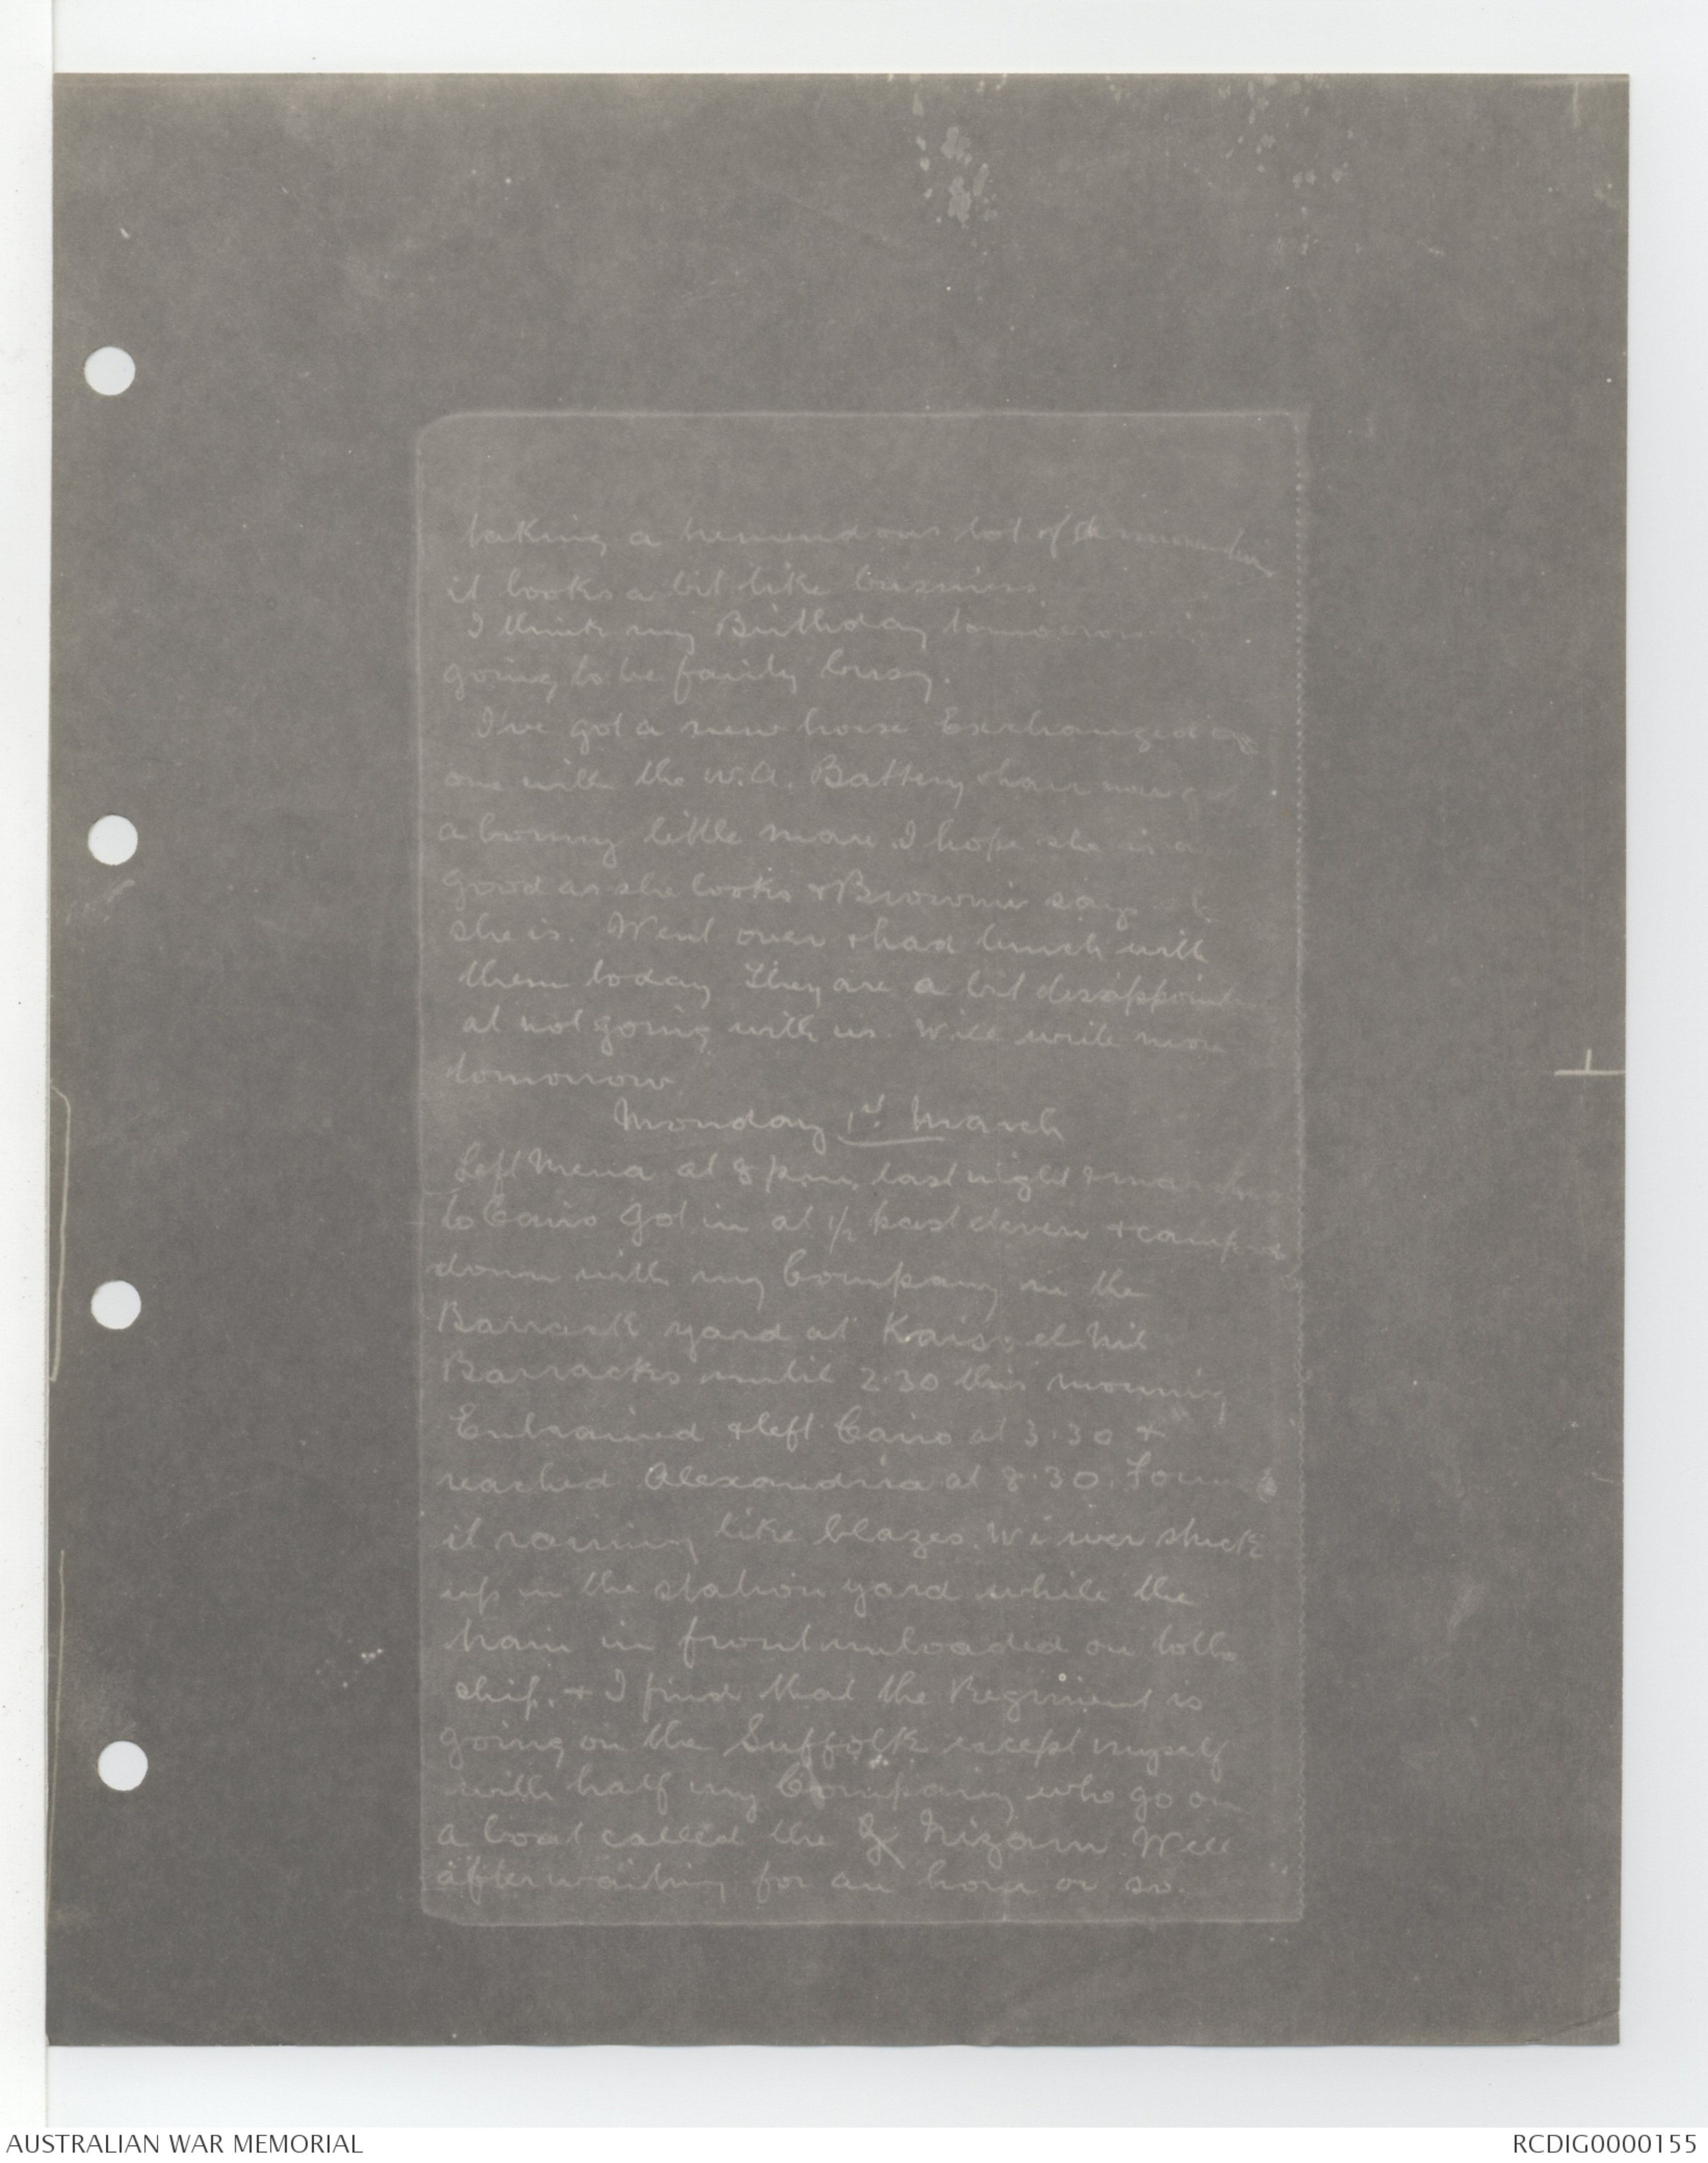 taking a tremendous lot of ammunition
it looks a bit like business
I think my Birthday tomorrow is
going to be fairly busy.
I've got a new horse Exchanged my
one with the W.A. Battery & have now got
a bonny little mare. I hope she is as
good as she looks & Brownie says
she is. Went over & had lunch with
them today They are a bit disappointed
at not going with us. Will write more
tomorrow
Monday 1st March
Left Mena at 8 p.m. last night & marched
to Cairo Got in at 1/2 past eleven & camped
down with my Company in the
Barrack yard at Kaisr el Nil
Barracks until 2.30 this morning
Entrained & left Cairo at 3.30 &
reached Alexandria at 8.30. Found
it raining like blazes. We wer stuck
up in the station yard while the
train in front unloaded on to the
ship. & I find that the Regiment is
going on the Suffolk except myself
with half my Company who go on
a boat called the Nizam Well
after waiting for an hour or so.
AUSTRALIAN WAR MEMORIAL
RCDIG0000155